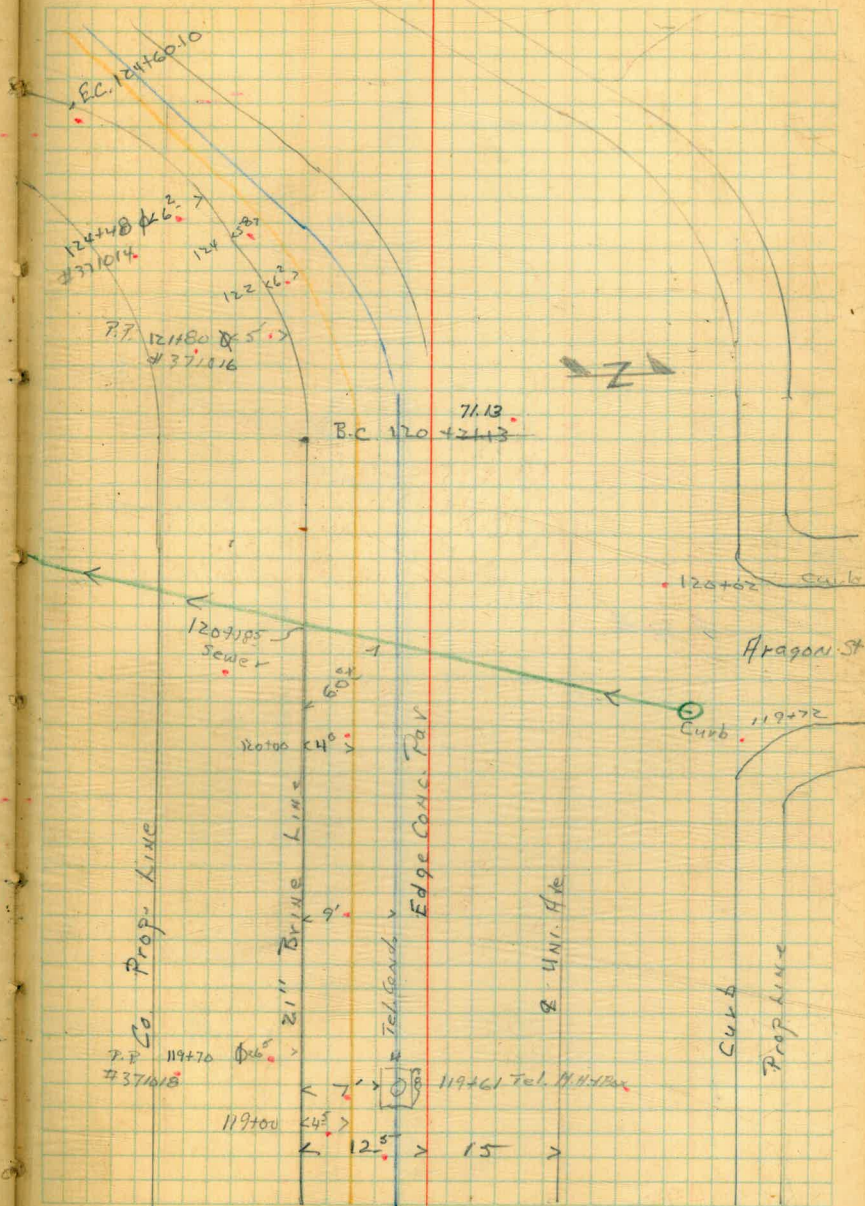 E.C. 124+60.10
124+48 6²
#371014
124 <5⁸>
122 <6²>
P.P. 121+80 <5'>
#371016
N
71.13
B.C. 120 +21.13
120+62 curb
120+185
Sewer
Aragon St
6.0
119+72
Curb
120+00 <4⁰>
Co Prop. Line
21" Brine Line
9'
Tel. Cond.
Edge Conc. Pav
Uni. Ave
Curb
Prop Line
P.P. 119+70 <6⁵>
#371018
<7'> 119+61 Tel. M.H.+Box
119+00 <4⁵>
< 12⁵ > 15 >